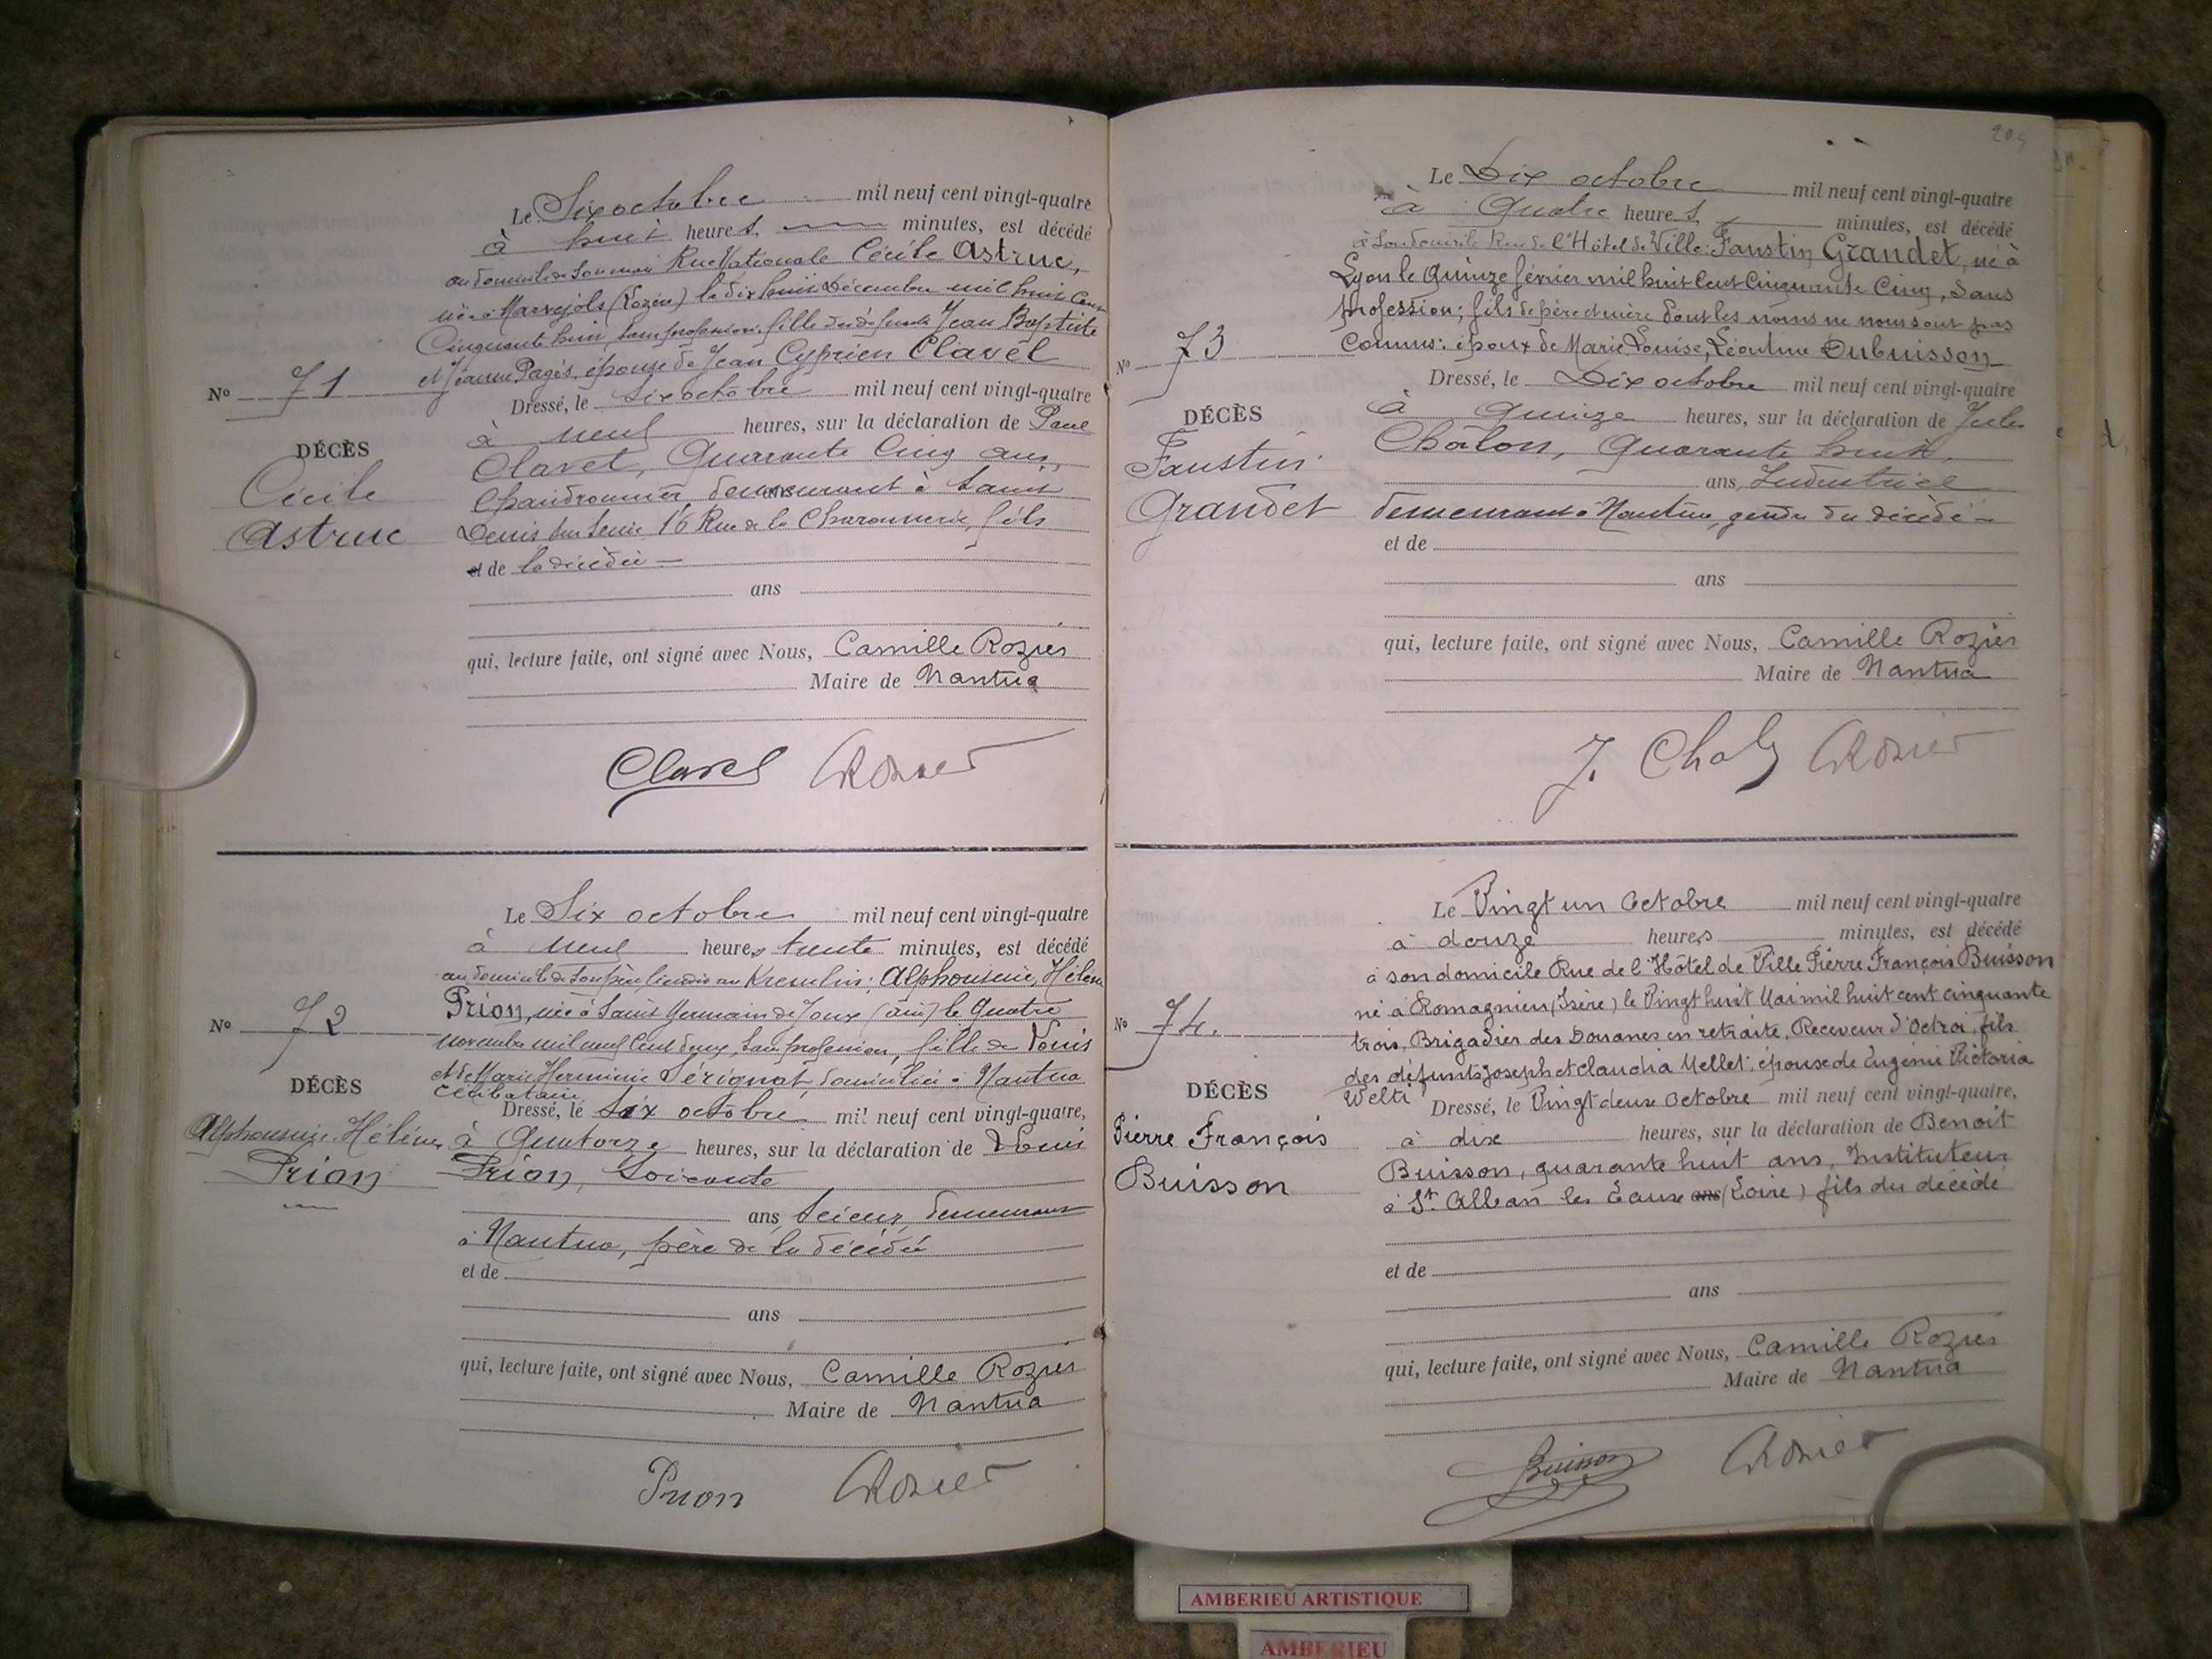 Le Six octobre mil neuf cent vingt-quatre
à huit heures minutes, est décédé
au domicile de son mari Rue Nationale Cécile Astruc,
née à Marvejols (Lozère) le dix huit Décembre mil huit cent
Cinquante huit, sans profession, fille des défunts Jean Baptiste
et Jeanne Pagès, épouse de Jean Cyprien Clavel
No 71
Dressé, le Six octobre mil neuf cent vingt-quatre
à neuf heures, sur la déclaration de Paul
DÉCÈS
Clavel, Quarante Cinq ans,
Cécile
Chaudronnier demeurant à Saint
Astruc
Denis sur Seine 16 Rue de la Charonnerie, fils
et de la décédée
ans
qui, lecture faite, ont signé avec Nous, Camille Rozier
Maire de Nantua
Clavel CRozier
Le Six octobre mil neuf cent vingt-quatre
à neuf heures trente minutes, est décédé
au domicile de son père, lieudit au Kremlin; Alphonsine, Hélène
Prion, née à Saint Germain de Joux (ain) le Quatre
novembre mil neuf cent deux, sans profession, fille de Louis
No 72
et de Marie Herminie Sérignat, domiciliés à Nantua
célibataire
DÉCÈS
Dressé, le Six octobre mil neuf cent vingt-quatre,
Alphonsine Hélène
à Quatorze heures, sur la déclaration de Louis
Prion
Prion, Soixante
ans Scieur, demeurant
à Nantua, père de la décédée
et de
ans
qui, lecture faite, ont signé avec Nous, Camille Rozier
Maire de Nantua
Prion CRozier
Le Dix octobre mil neuf cent vingt-quatre
à Quatre heures minutes, est décédé
à son domicile Rue de l'Hôtel de Ville: Faustin Grandet, né à
Lyon le Quinze février mil huit cent Cinquante Cinq, Sans
profession; fils de père et mère dont les noms ne nous sont pas
connus: époux de Marie Louise, Léontine Dubuisson
No 73
Dressé, le Dix octobre mil neuf cent vingt-quatre
à Quinze heures, sur la déclaration de Jules
DÉCÈS
Châlon, Quarante huit,
Faustin
ans, Industriel
Grandet
demeurant à Nantua, gendre du décédé
et de
ans
qui, lecture faite, ont signé avec Nous, Camille Rozier
Maire de Nantua
J. Chalon CRozier
Le Vingt un Octobre mil neuf cent vingt-quatre
à douze heures minutes, est décédé
à son domicile Rue de l'Hôtel de Ville Pierre François Buisson
né à Romagnieu (Isère) le Vingt huit Mai mil huit cent cinquante
trois, Brigadier des Douanes en retraite, Receveur d'Octroi, fils
No 74.
des défunts Joseph et Claudia Mellet: épouse de Eugénie Victoria
Welti
DÉCÈS
Dressé, le Vingt deux Octobre mil neuf cent vingt-quatre,
Pierre François
à dix heures, sur la déclaration de Benoit
Buisson
Buisson, quarante huit ans, Instituteur
à St. Alban les Eaux ans (Loire) fils du décédé
et de
ans
qui, lecture faite, ont signé avec Nous, Camille Rozier
Maire de Nantua
Buisson CRozier
AMBERIEU ARTISTIQUE
AMBERIEU